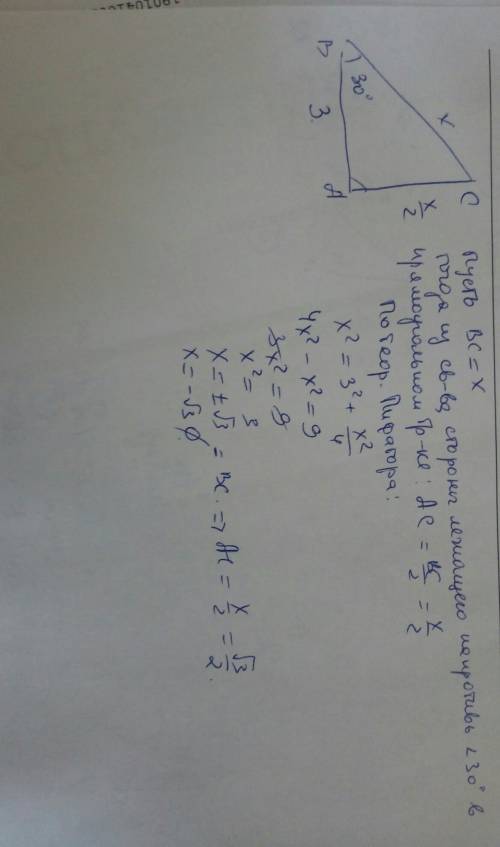 B
30°
x
3
A
x/2
C
Пусть BC = x
тогда из св-ва стороны лежащего напротивь ∠30° в
прямоугольном тр-ке: AC = BC/2 = x/2
По теор. Пифагора:
x² = 3² + x²/4
4x² - x² = 9
3x² = 9
x² = 3
x = ±√3 = BC. => AC = x/2 = √3/2.
x = -√3 ∅